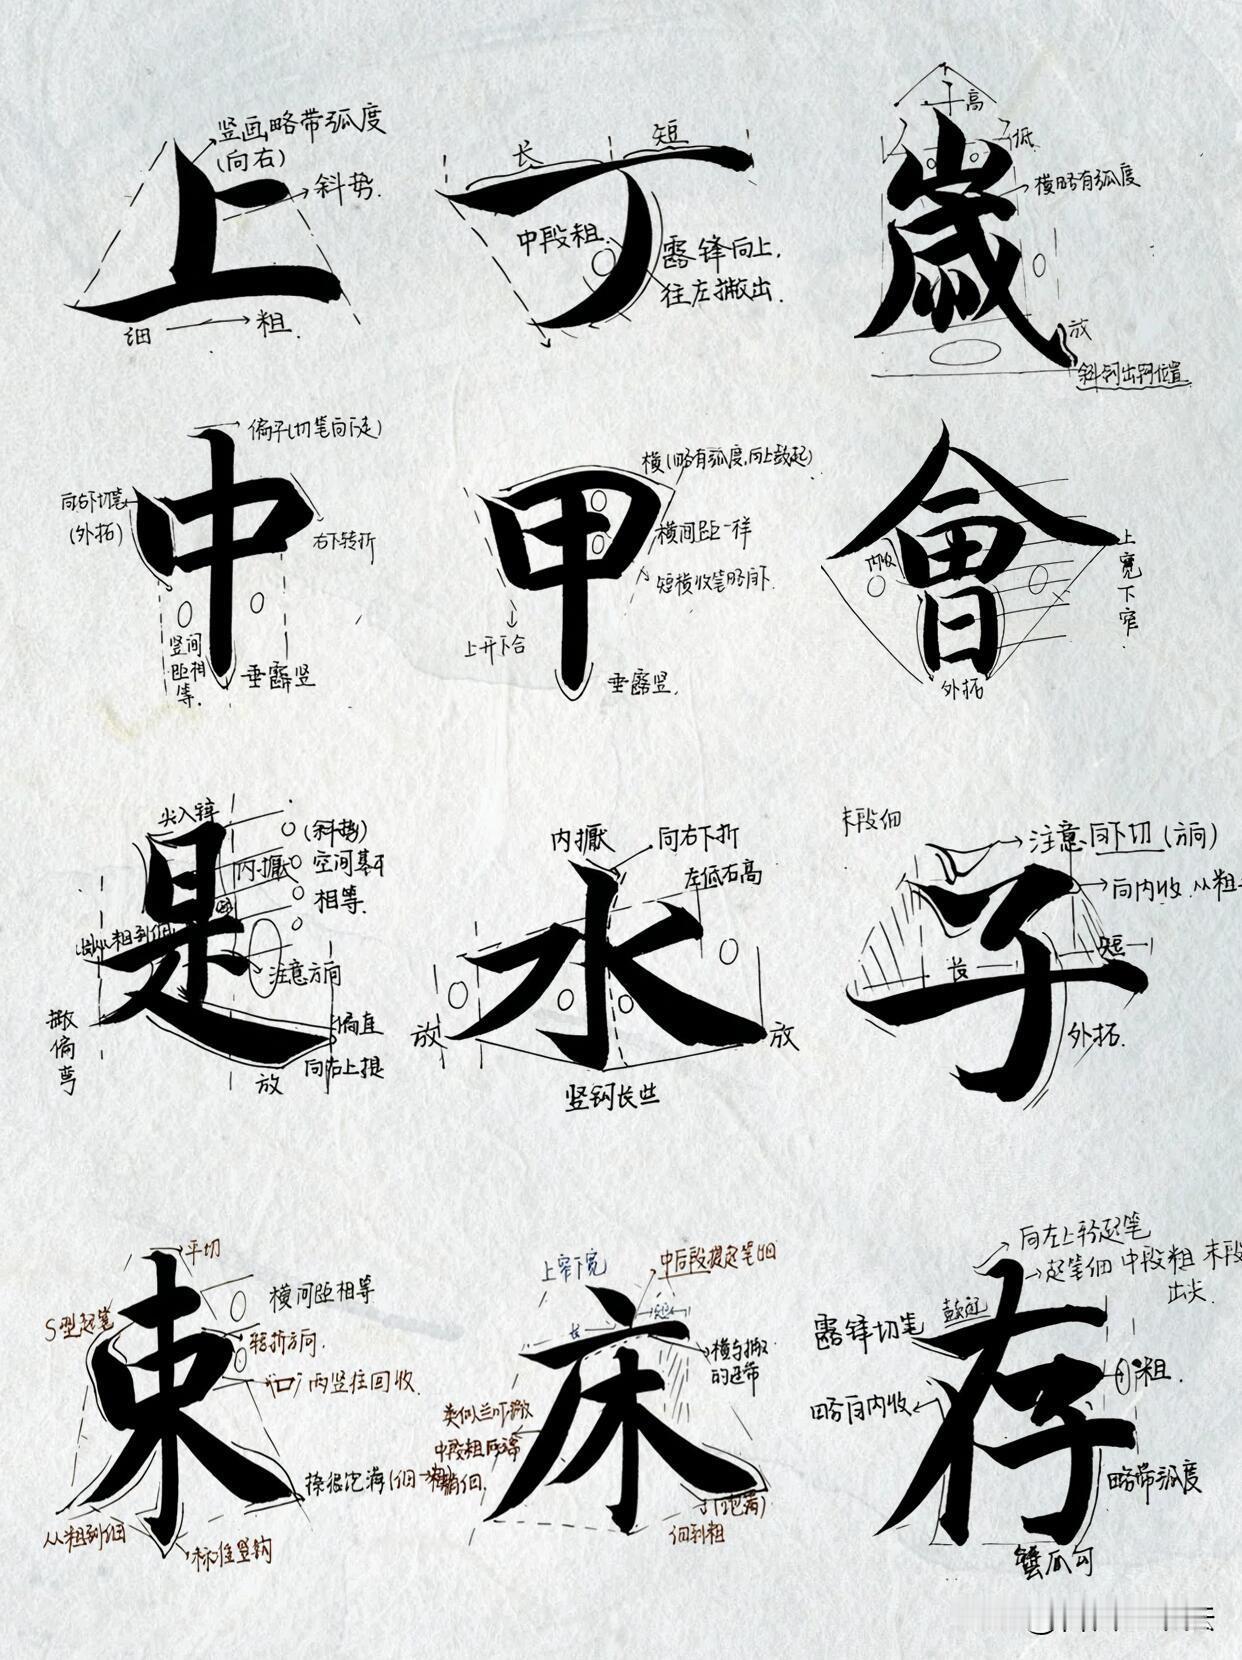 竖画略带弧度
(向右)
斜势.
上
细
粗.
长
短
丁
中段粗.
露锋向上,
往左撇出.
高
低
横略有弧度
歲
放
斜钩出钩位置
偏子(切笔向下走)
向右下切笔
(外拓)
中
右下转折
竖间
距相
等.
垂露竖
横(略有弧度,向上鼓起)
甲
横间距一样
短横收笔略向下.
上开下合
垂露竖.
會
内收
上宽下窄
外拓
尖入锋
(斜势)
空间基本
相等.
内擫
是
从粗到细
注意方向
撇偏弯
偏直
向右上提
放
内擫
向右下折
左低右高
水
放
放
竖钩长些
末段细
注意向下切(方向)
向内收.从粗
子
长
短
外拓.
平切
S型起笔
横间距相等
转折方向.
"口"两竖往回收.
東
捺很饱满
从粗到细
标准竖钩
上窄下宽
中后段提起笔细
长
短
床
横与撇
的连带
类似兰叶撇
中段粗
(饱满)
细到粗
向左上轻起笔
起笔细 中段粗 末段
出尖.
露锋切笔
鼓起
存
粗.
略向内收
略带弧度
蟹爪勾